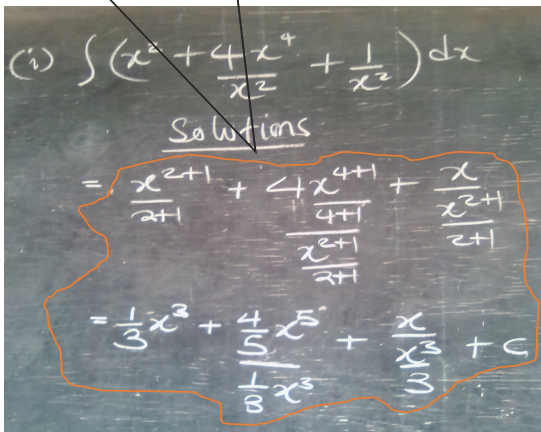 (i) ∫(x² + 4x⁴/x² + 1/x²) dx
Solutions
= x²⁺¹/2+1 + 4x⁴⁺¹/4+1/x²⁺¹/2+1 + x/x²⁺¹/2+1
= 1/3 x³ + 4/5 x⁵/1/3 x³ + x/x³/3 + c